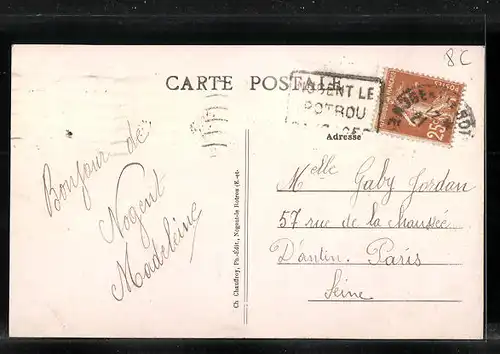 8c
CARTE POSTALE
NOGENT LE
ROTROU
25
Adresse
Bonjour de
Nogent
Madeleine
Ch. Chauffroy, Ph.-Édit., Nogent-le-Rotrou (E.-et-
Melle Gaby Jordan
57 rue de la chaussée
D'antin. Paris
Seine